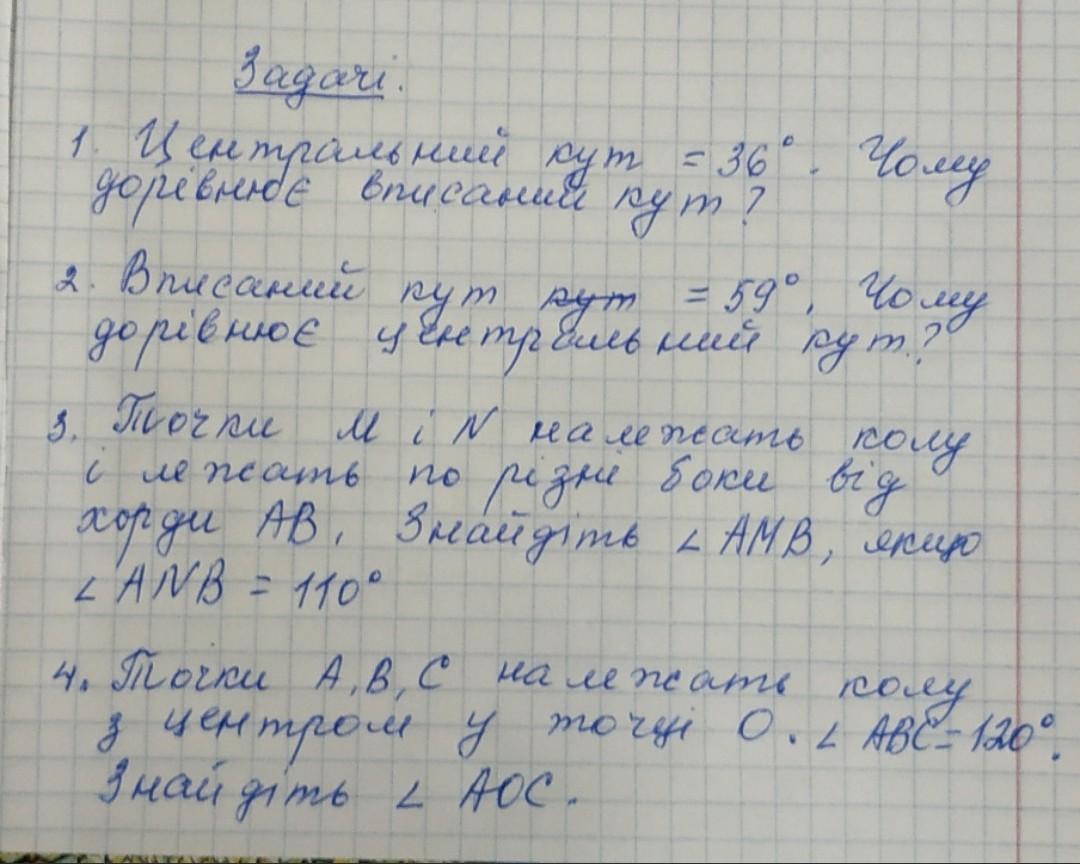 Задачі.
1. Центральний кут = 36°. Чому
дорівнює вписаний кут?
2. Вписаний кут кут = 59°. Чому
дорівнює центральний кут?
3. Точки M і N належать колу
і лежать по різні боки від
хорди AB. Знайдіть ∠ AMB, якщо
∠ ANB = 110°
4. Точки A, B, C належать колу
з центром у точці O. ∠ ABC = 120°.
Знайдіть ∠ AOC.